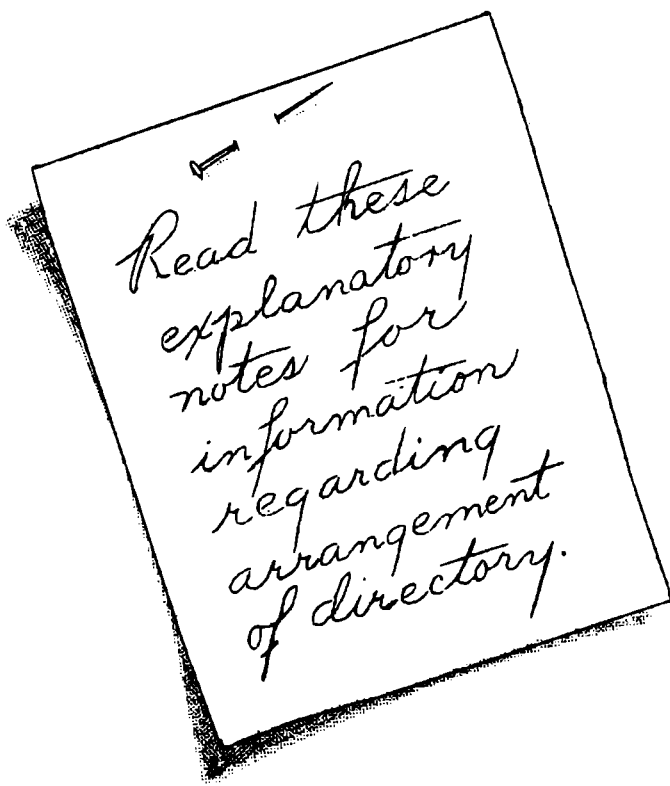 Read these
explanatory
notes for
information
regarding
arrangement
of directory.